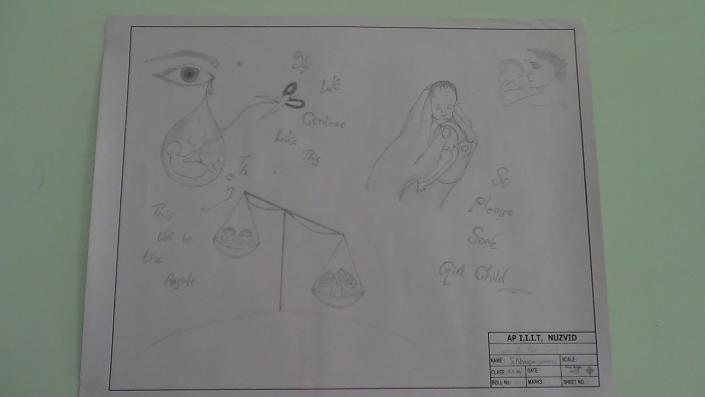 If
WE
Continue
Like
This
Then
This
will be
the
Result
So
Please
Save
Girl Child
AP I.I.I.T, NUZVID
NAME:
SCALE:
CLASS:
DATE:
ROLL No.
MARKS
SHEET NO.